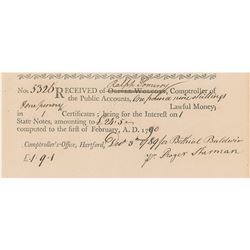 Ralph Pomeroy
No. 5326 RECEIVED of OLIVER WOLCOTT, Comptroller of
the Public Accounts, One pound nine shillings
& one penny Lawful Money;
in 1 Certificates; being for the Interest on 1
State Notes, amounting to £ 24.5.
computed to the first of February, A. D. 1790
Comptroller's-Office, Hartford, Decr 3d 1789 for Bethiel Baldwin
£ 1.9.1 pr Roger Sherman